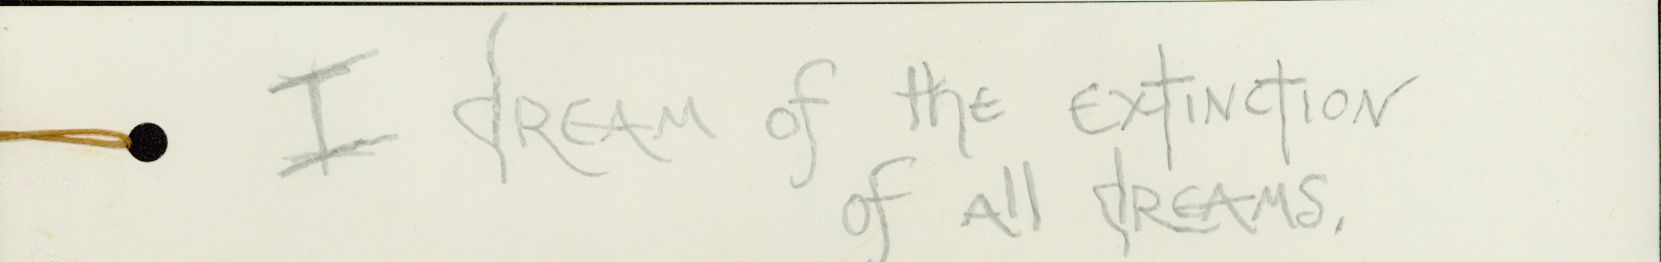 I dREAM of thE EXTINCTION
of All dREAMS.